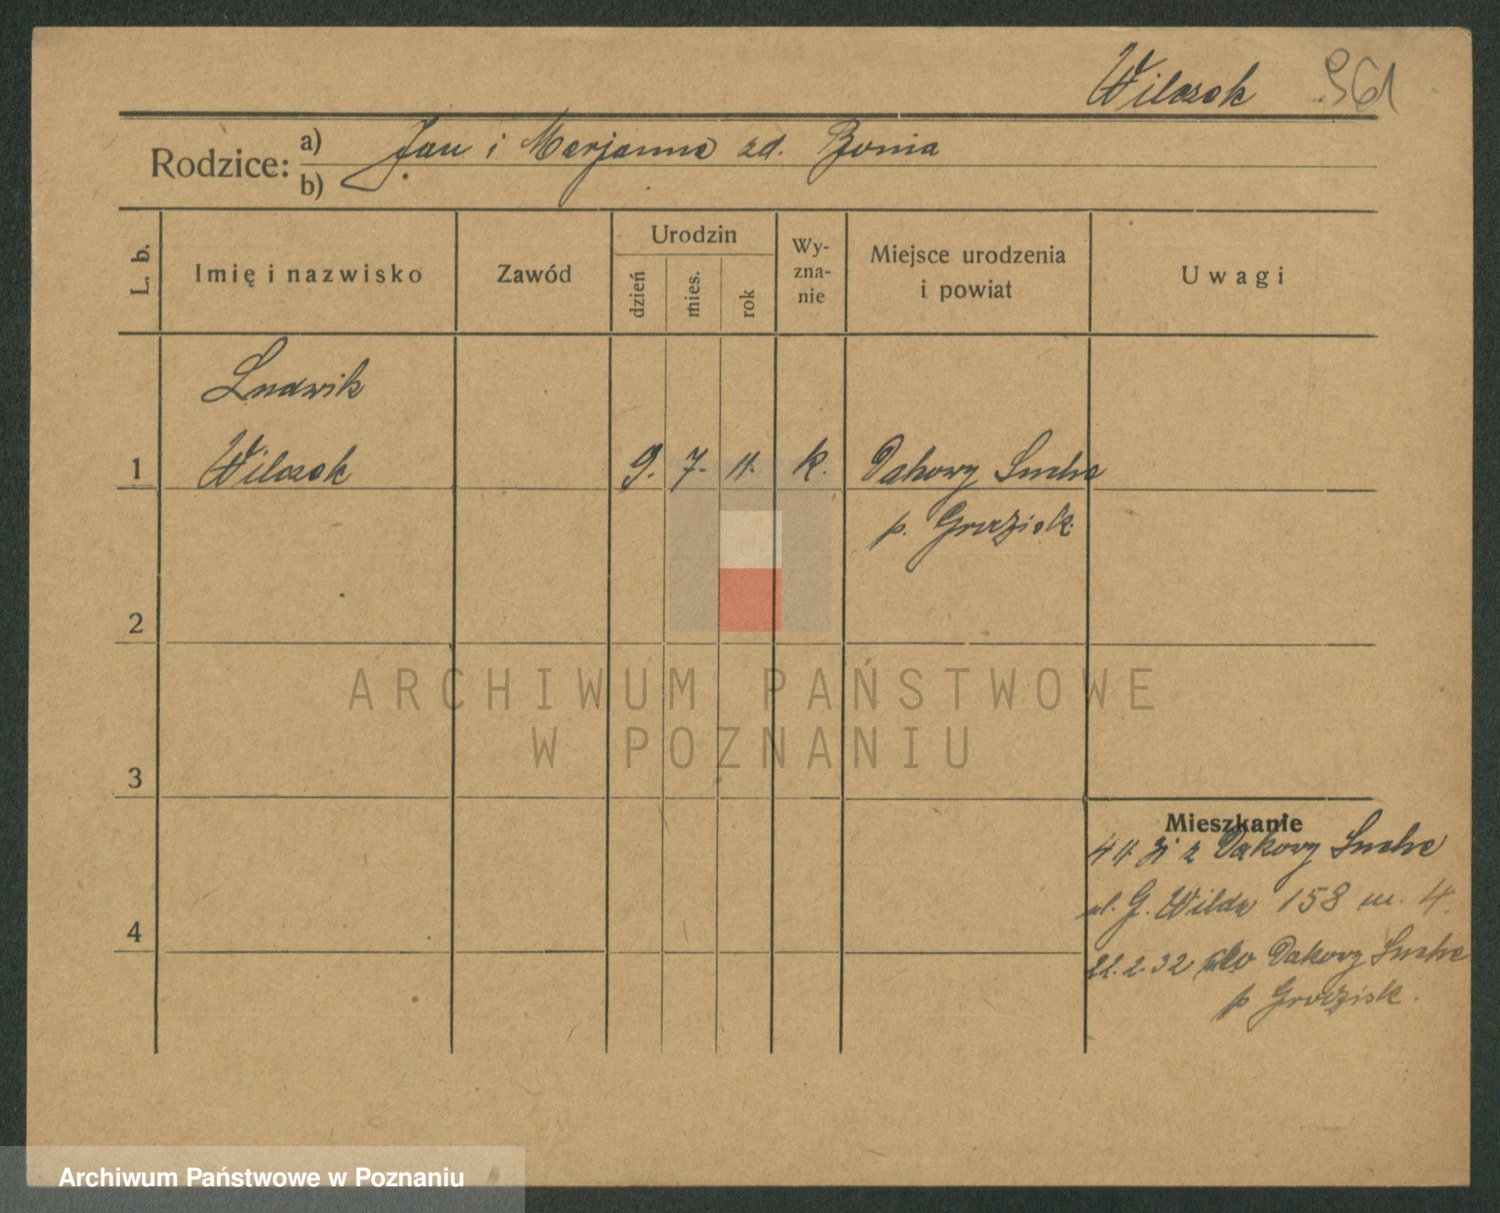 Wilczek 961
Rodzice: a) Jan i Marjanna zd. Bonia
b)
L. b.
Imię i nazwisko
Zawód
Urodzin
dzień
mies.
rok
Wy-
zna-
nie
Miejsce urodzenia
i powiat
Uwagi
Ludwik
1 Wilczek 9. 7. 11. k. Dakowy Suche
p. Grodzisk.
2
3
4
Mieszkanie
z Dakowy Suche
ul. G. Wilda 158 m. 4.
22.2.32 do Dakowy Suche
p Grodzisk.
ARCHIWUM PAŃSTWOWE
W POZNANIU
Archiwum Państwowe w Poznaniu